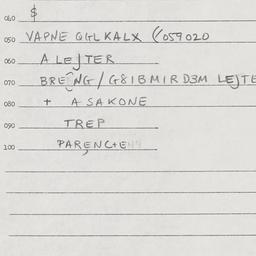 040 $
050 VAPNE QGLKALX ((059020
060 A LEJTER
070 BREÑNG / G8IBMIRD3M LEJTE
080 + A SAKONE
090 TREP
100 PARENC+E